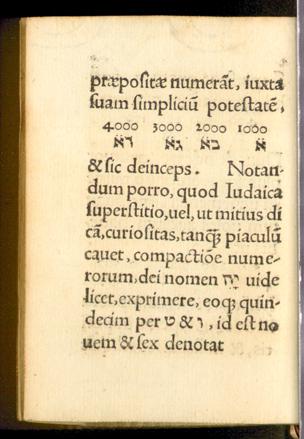 præpositæ numerāt, iuxta
suam simpliciū potestatē,
4000 3000 2000 1000
דא גא בא א̈
& sic deinceps. Notan-
dum porro, quod Iudaica
superstitio, uel, ut mitius di
cā, curiositas, tanq̃; piaculū
cauet, compactiōe nume-
rorum, dei nomen יה uide
licet, exprimere, eoq; quin-
decim per ו & ט, id est no
uem & sex denotat